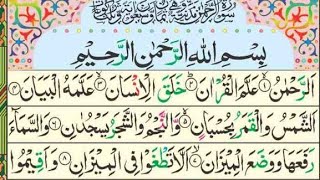 سورة الرحمن مدنية وهي ثمان وسبعون آية
بِسْمِ اللهِ الرَّحْمٰنِ الرَّحِيْمِ
اَلرَّحْمٰنُ ۝١ عَلَّمَ الْقُرْاٰنَ ۝٢ خَلَقَ الْاِنْسَانَ ۝٣ عَلَّمَهُ الْبَيَانَ ۝٤
اَلشَّمْسُ وَالْقَمَرُ بِحُسْبَانٍ ۝٥ وَّالنَّجْمُ وَالشَّجَرُ يَسْجُدٰنِ ۝٦ وَالسَّمَآءَ
رَفَعَهَا وَوَضَعَ الْمِيْزَانَ ۝٧ اَلَّا تَطْغَوْا فِي الْمِيْزَانِ ۝٨ وَاَقِيْمُوا